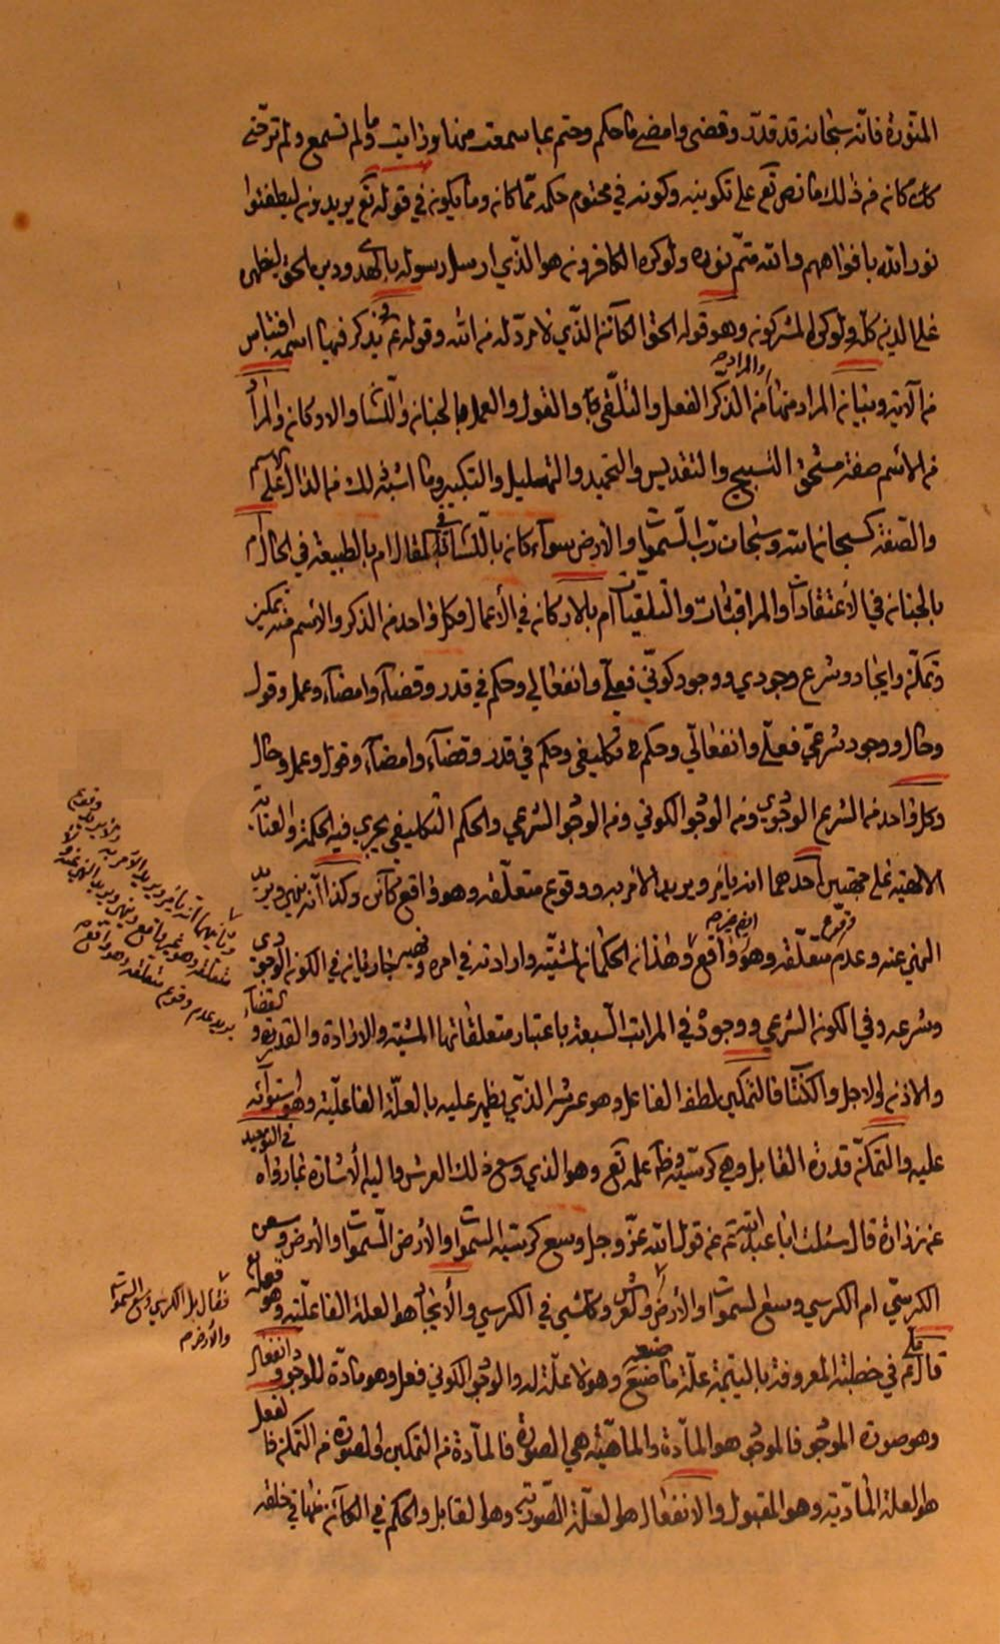 المنورة فانه سبحانه قد قدّر وقضى وامضى ما حكم وحتم بما سمعت منها ورايت وما لم تسمع ولم تر حتى
كان مما كان من ذلك ما نص تع على تكوينه وكونه في محتوم حكمه مما كان وما يكون في قوله تع يريدون ليطفئوا
نور الله بافواههم والله متم نوره ولو كره الكافرون هو الذي ارسل رسوله بالهدى ودين الحق ليظهره
على الدين كله ولو كره المشركون وهو قوله الحق الكائن الذي لا مرد له من الله وقوله تع يذكر فيها اسمه اقتباس
من الآية وبيان المراد منها من الذكر الفعل والتلقي والقول والعمل بالجنان واللسان والاركان والمراد
والمراد
من الاسم صفة مستحق التسبيح والتقديس والتحميد والتهليل والتكبير وما اشبه ذلك من الدال على الاسم
والصفة كسبحان الله وسبحان رب السموات والأرض سواء كان باللسان في المقال ام بالطبيعة في الحال ام
بالجنان في الاعتقادات والمراقبات والتلقيات ام بالاركان في الأعمال وكل واحد من الذكر والاسم منه تمكين
وتمكّن وايجاد وشرع وجودي ووجود كوني فعلي وانفعالي وحكم في قدر وقضاء وامضاء وعمل وقول
وحال ووجود شرعي فعلي وانفعالي وحكم تكليفي وحكم في قدر وقضاء وامضاء وقول وعمل وحال
وكل واحد من الشرع الوجودي ومن الوجود الكوني ومن الوجود الشرعي والحكم التكليفي يجري فيه الحكمة والعناية
الالهية على جهتين احدهما انه يأمر ويريد الأمر به ووقوع متعلقه وهو واقع كائن وكذا انه ينهى ويريد
النهي عنه وعدم وقوع متعلقه وهو واقع وهذان الحكمان لمشيته وارادته في امره ونهيه جاريان في الكون الوجودي
وشرعه وفي الكون الشرعي ووجوده في المراتب السبعة باعتبار متعلقاتها المشية والارادة والقدر والقضاء
والاذن والاجل والكتاب فالتمكين لطف الفاعل وهو عرشه الذي يظهر عليه بالعلة الفاعلية وهو استوائه
عليه والتمكن قدرة القابل وهي كرسيه وظاهر علمه تع وهو الذي وسع ذلك العرش واليه الأشارة بما رواه في التوحيد
عن زرارة قال سئلت ابا عبد الله ع عن قول الله عز وجل وسع كرسيه السموات والأرض السموات والأرض وسعن
الكرسي ام الكرسي وسع السموات والأرض والعرش وكل شي في الكرسي والأيجاد هو العلة الفاعلية وهو فعله تع
قال علي ع في خطبته المعروفة باليتيمة علة ما صنع صنعه وهو لا علة له والوجود الكوني فعل وهو مادة للوجود وانفعال
وهو صورة الموجود فالموجود هو المادة والماهية هي الصورة فالمادة من التمكين والصورة من التمكن فالفعل
هو العلة المادية وهو المقبول والانفعال هو العلة الصورية وهو القابل والحكم في الكائن منهما في خلقه
وثانيهما انه يأمر ويريد الأمر به ولا يريد وقوع
متعلقه وهو غير واقع وينهى ويريد النهي عنه ولا
يريد عدم وقوع متعلقه وهو واقع
فقال بل الكرسي وسع السموات
والأرض